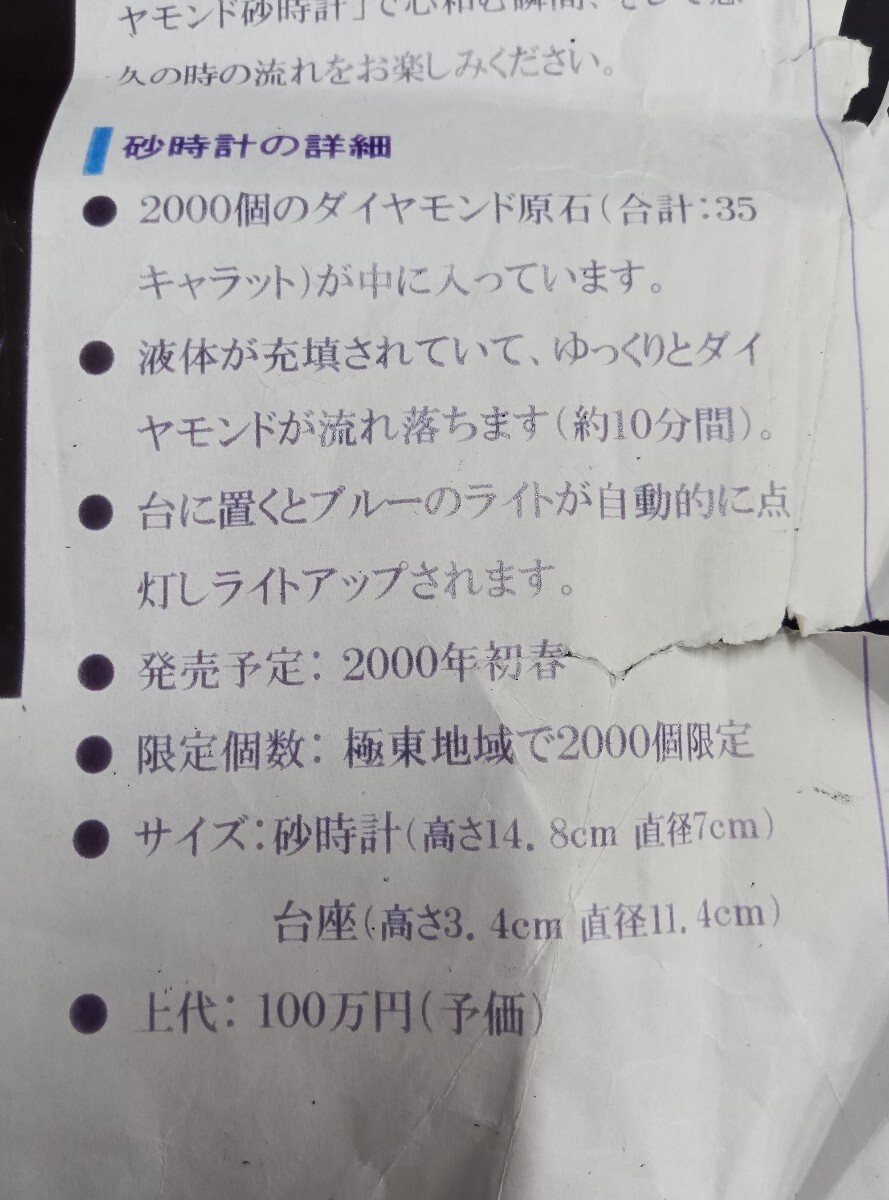 ヤモンド砂時計」で心和む瞬間、そして悠
久の時の流れをお楽しみください。
砂時計の詳細
● 2000個のダイヤモンド原石(合計:35
キャラット)が中に入っています。
● 液体が充填されていて、ゆっくりとダイ
ヤモンドが流れ落ちます(約10分間)。
● 台に置くとブルーのライトが自動的に点
灯しライトアップされます。
● 発売予定: 2000年初春
● 限定個数: 極東地域で2000個限定
● サイズ:砂時計(高さ14.8cm 直径7cm)
台座(高さ3.4cm 直径11.4cm)
● 上代: 100万円(予価)